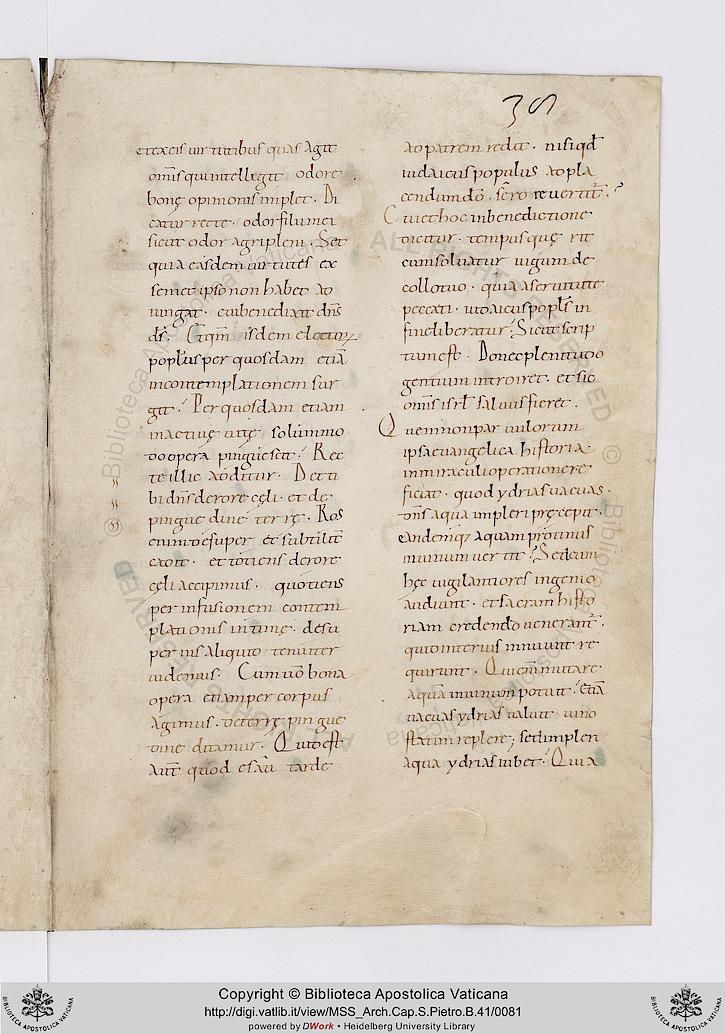 38
et ex eis uirtutibus quas agit
om̅s qui intellegit odore
bonę opinionis implet. Di
catur recte. odor filii mei
sicut odor agri pleni. Set
quia easdem uirtutes ex
semet ipso non habet ad
iungat. cui benedixit dn̅s
popl̅us per quosdam etiā
in contemplationem sur
git. Per quosdam etiam
in actiuę uitę solummo
do opera pinguescit. Rec
te illic additur. Det ti
bi dn̅s de rore cęli. et de
pinguedine terrę. Ros
enim desuper et subtilit̅
cadit. et totiens de rore
cęli accipimus. quotiens
per infusionem contem
plationis intimę. desu
per nis aliquid tenuiter
uidemus. Cum uo̅ bona
opera etiam per corpus
agimus. de terrę pingue
dine ditamur. Quid est
aut̅ quod esau tarde
ad patrem redit. nisi qd̅
iudaicus populus ad pla
candum do̅. sero reuertit̅.
Cui et hoc in benedictione
dicitur. tempusque erit
cum soluatur iugum de
collo tuo. quia a seruitute
peccati. iudaicus popl̅s in
fine liberatur. Sicut scrip
tum est. Donec plenitudo
gentium introiret. et sic
om̅is isrl̅ saluus fieret.
Quem non parui illorum
ipsa euangelica historia
in miraculi operatione re
ficiat. quod ydrias uacuas
dn̅s aqua impleri pręcepit.
eandemq; aquam protinus
in uinum uertit. Sed cum
hęc uigilantiores ingenio
audiunt. et sacram histo
riam credendo uenerant̅.
quid interius innuunt re
quirunt. Qui eni̅ mutare
aquā in uinum potuit. etiā
uacuas ydrias ualuit uino
statim replere; set impleri
aqua ydrias iubet. Quia
Copyright © Biblioteca Apostolica Vaticana
http://digi.vatlib.it/view/MSS_Arch.Cap.S.Pietro.B.41/0081
powered by DWork • Heidelberg University Library